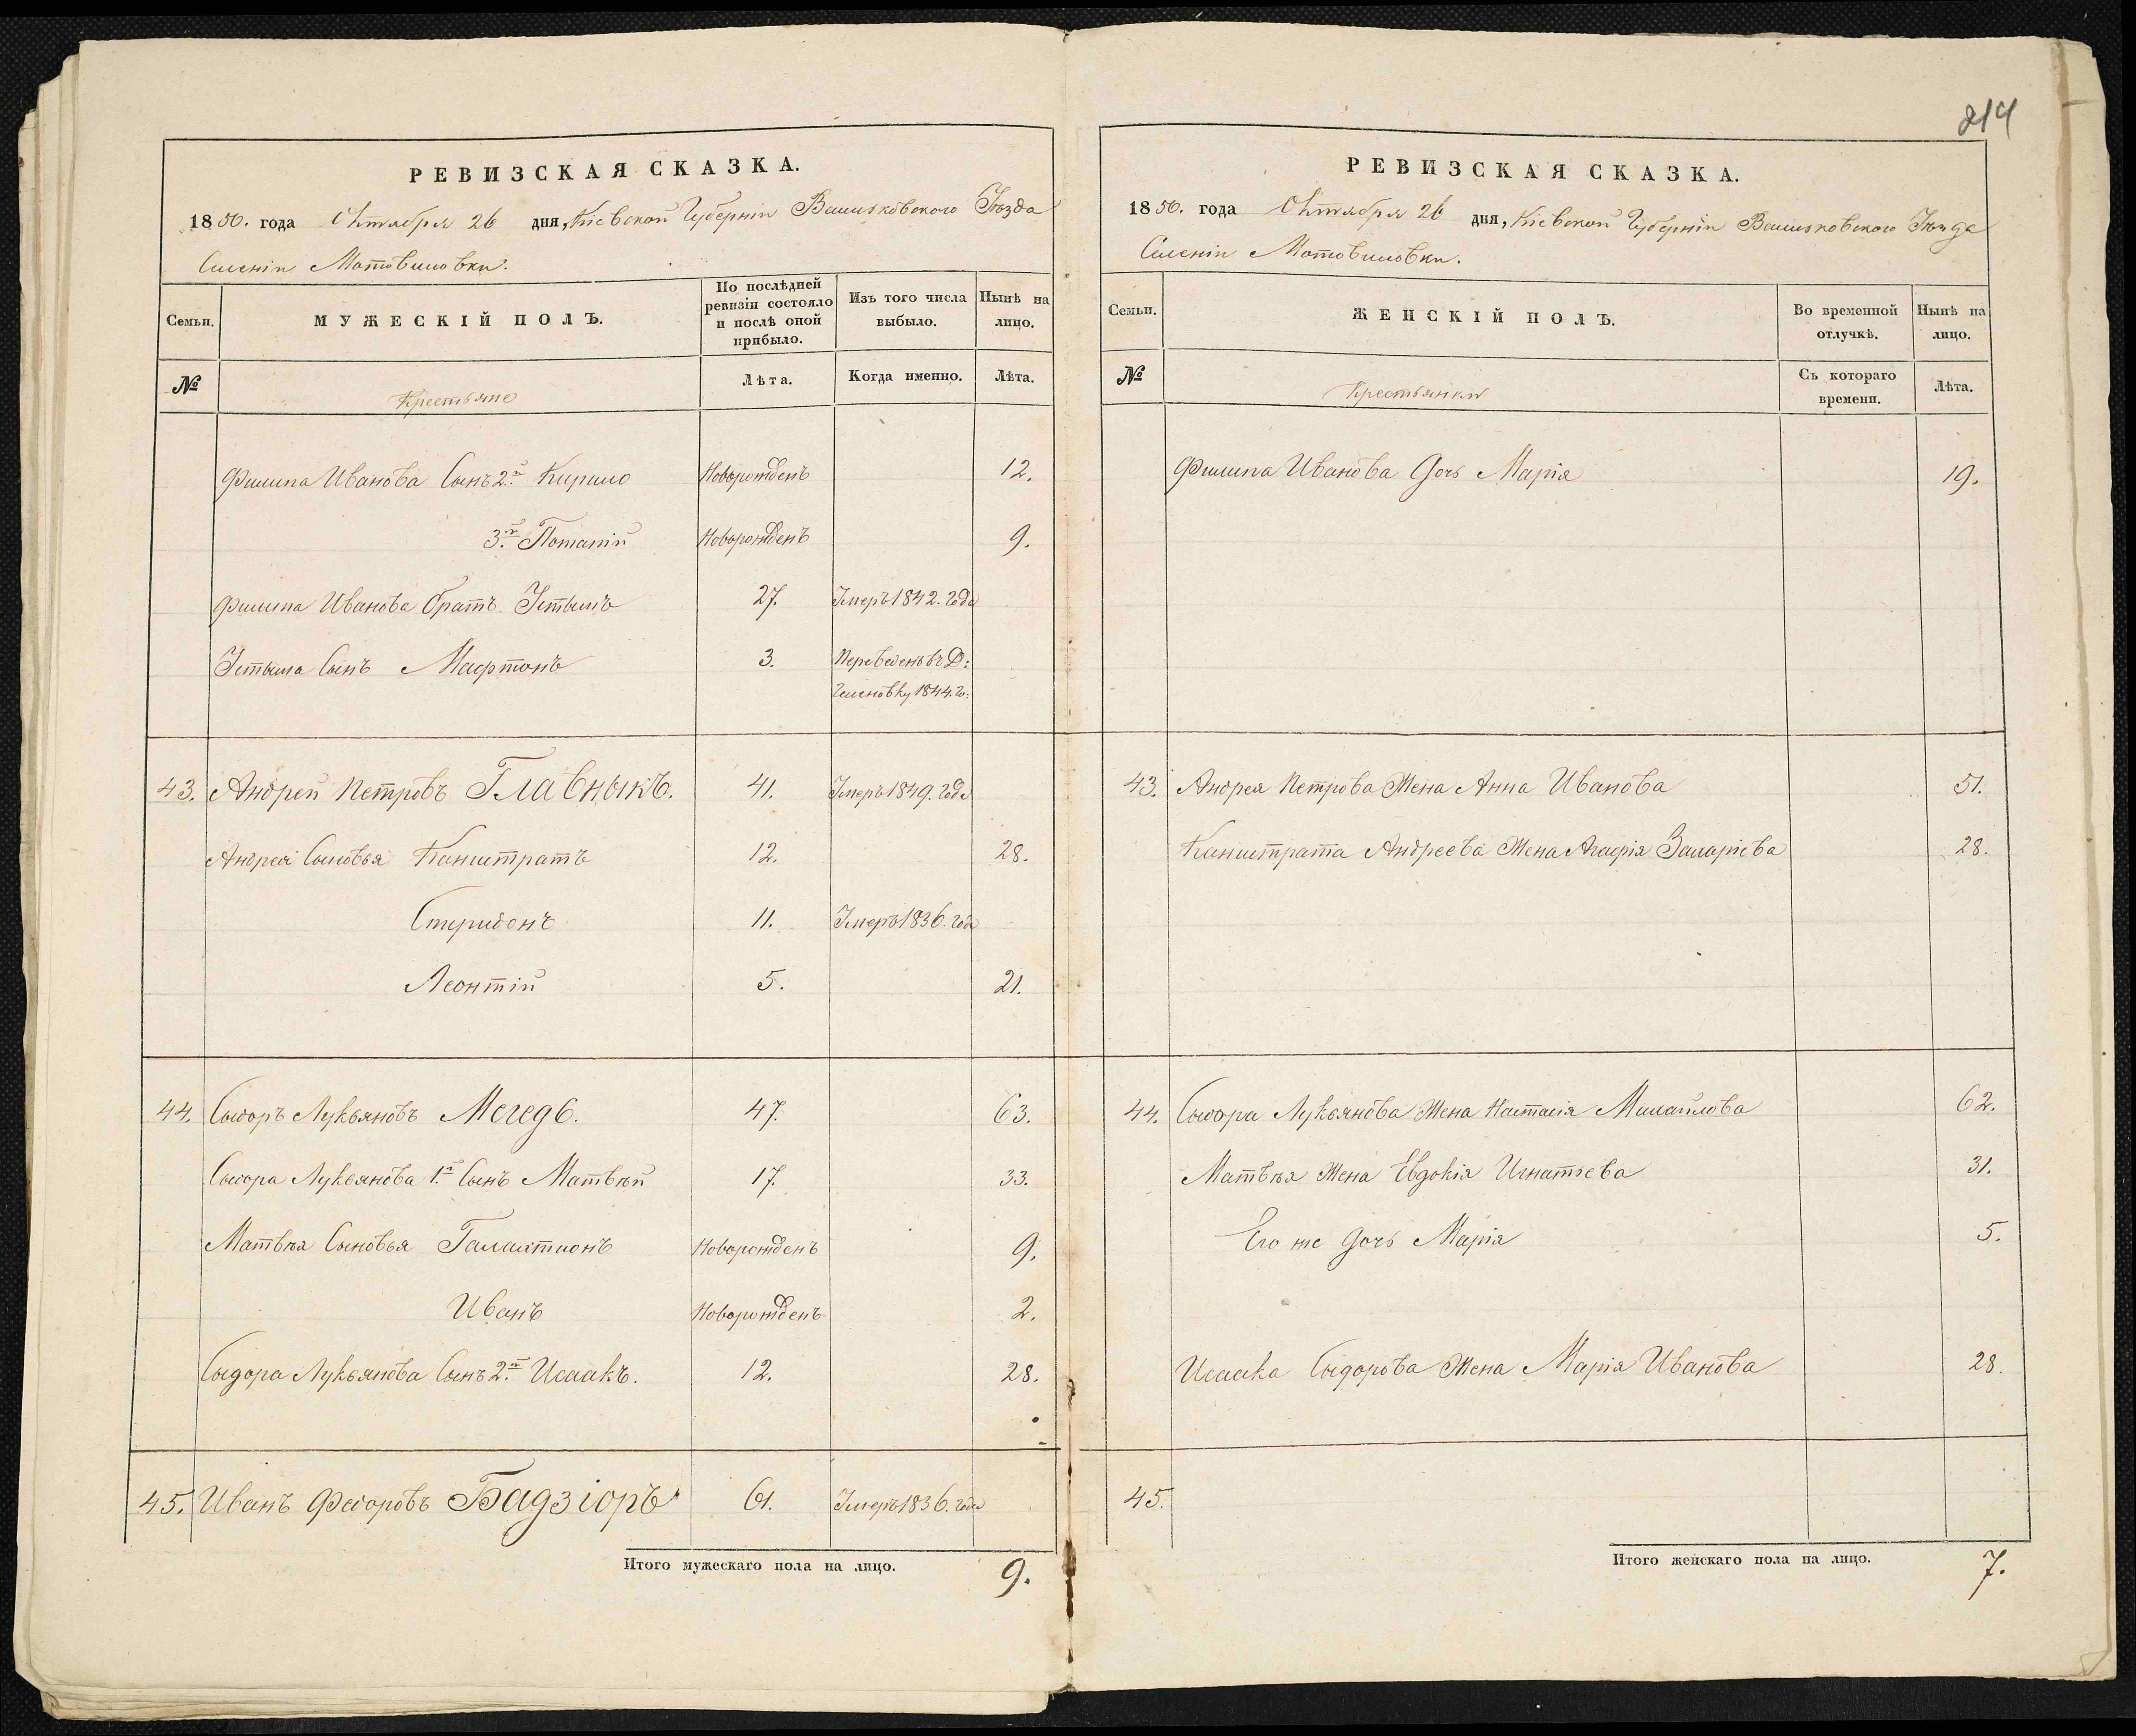 214
РЕВИЗСКАЯ СКАЗКА.
1850. года Октября 26 дня, Кіевской Губерніи Васильковского Уѣзда
Селенія Мотовиловки.
Семьи.
МУЖЕСКІЙ ПОЛЪ.
По послѣдней ревизіи состояло и послѣ оной прибыло.
Изъ того числа выбыло.
Нынѣ на лицо.
№
Крестьяне
Лѣта.
Когда именно.
Лѣта.
Филипа Иванова Сынъ 2.й Кирило Новорожденъ 12.
3.й Потапій Новорожденъ 9.
Филипа Иванова братъ Устымъ 27. Умеръ 1842. года
Устыма Сынъ 3. Переведенъ въ Д:
1844. го:
43. Андрей Петровъ Главныкъ. 41. Умеръ 1849. года
Андрея Сыновья Канистратъ 12. 28.
Спиридонъ 11. Умеръ 1836. года
Леонтій 5. 21.
44. Сыдоръ Лукьяновъ Мегедь. 47. 63.
Сыдора Лукьянова 1.й Сынъ Матвѣй 17. 33.
Матвѣя Сыновья Галактионъ Новорожденъ 9.
Иванъ Новорожденъ 2.
Сыдора Лукьянова Сынъ 2.й Исаакъ. 12. 28.
45. Иванъ Федоровъ Бадзіоръ 61. Умеръ 1836. года
Итого мужескаго пола на лицо. 9.
РЕВИЗСКАЯ СКАЗКА.
1850. года Октября 26 дня, Кіевской Губерніи Васильковского Уѣзда
Селенія Мотовиловки.
Семьи.
ЖЕНСКІЙ ПОЛЪ.
Во временной отлучкѣ.
Нынѣ на лицо.
№
Крестьянки
Съ котораго времени.
Лѣта.
Филипа Иванова Дочь Марія 19.
43. Андрея Петрова Жена Анна Иванова 51.
Канистрата Андреева Жена Агафія Захаріева 28.
44. Сыдора Лукьянова Жена Настасія Михайлова 62.
Матвѣя Жена Евдокія Игнатьева 31.
Его же дочь Марія 5.
Исаака Сыдорова Жена Марія Иванова 28.
45.
Итого женскаго пола на лицо. 7.